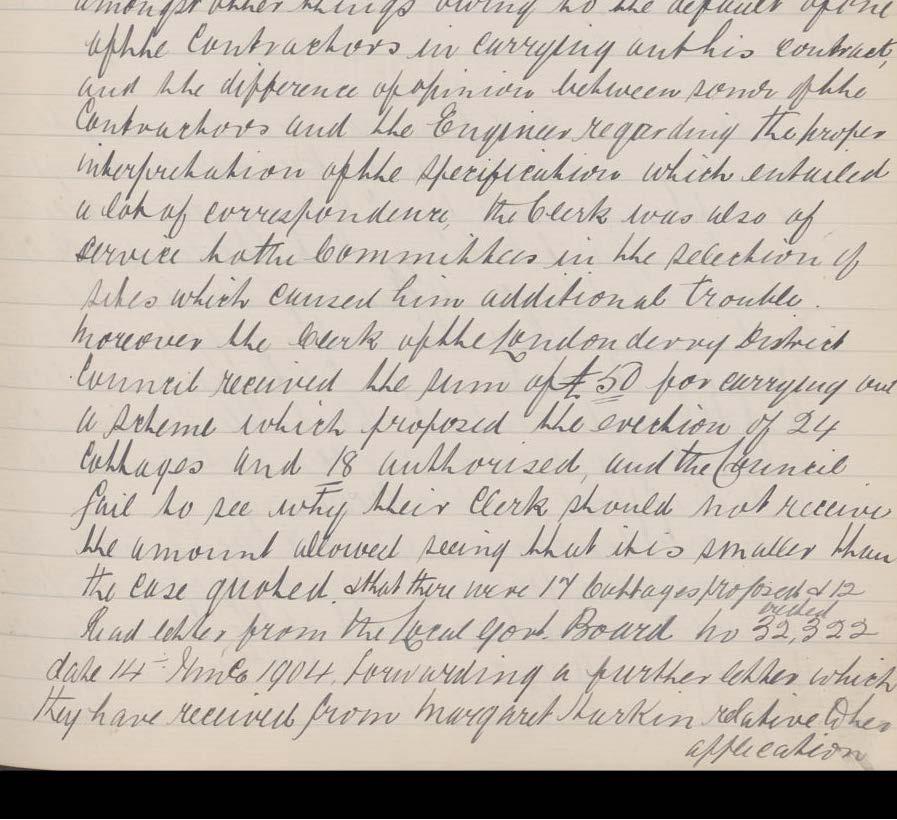 amongst other things owing to the default of one
of the Contractors in carrying out his contract,
and the difference of opinion between some of the
Contractors and the Engineer regarding the proper
interpretation of the specification which entailed
a lot of correspondence, the Clerk was also of
service to the Committees in the selection of
sites which caused him additional trouble.
Moreover the Clerk of the Londonderry District
Council received the sum of £50 for carrying out
a scheme which proposed the erection of 24
Cottages and 18 authorised, and the Council
fail to see why their Clerk should not receive
the amount allowed seeing that it is smaller than
the case quoted. & that there were 17 Cottages proposed & 12
erected
Read letter from the Local Govt. Board No 32,322
date 14th June 1904, forwarding a further letter which
they have received from Margaret Harkin relative to her
application